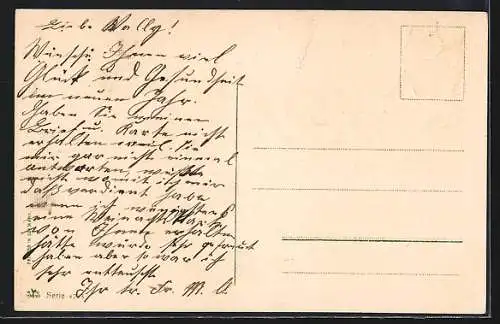 Liebe Wally!
Wünsche Ihnen viel
Glück und Gesundheit
im neuen Jahr.
Haben Sie meinen
Brief u. Karte nicht
erhalten weil Sie
mir gar nicht einmal
antworten, wüßte
nicht womit ich mir
daß verdient habe
wenn ich wenigstens
eine Weihnachts
von Ihnen erhalten
hätte würde sehr gefreut
haben aber so war ich
sehr enttäuscht
Ihr tr. Fr. M. A.
Serie